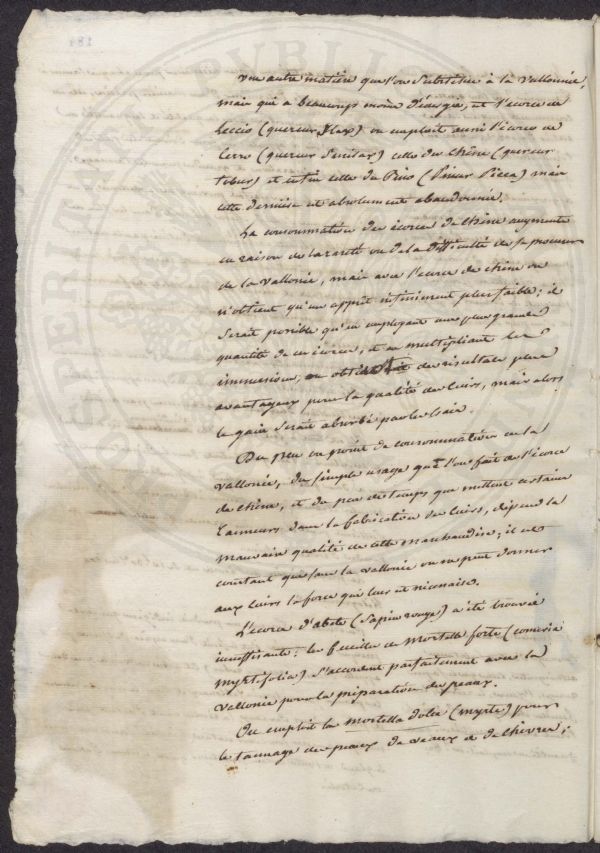 une autre matière que l'on substitue à la Vallonnée,
mais qui a beaucoup moins d'énergie, est l'écorce de
Leccio (quercus Ilex) on emploit aussi l'écorce de
Cerro (quercus ) celle du Chêne (quercus
robur) et enfin celle du Pino (Pinus Picea) mais
cette dernière est absolument abandonnée.
La consommation des écorces de chêne augmente
en raison de la rareté ou de la difficulté de se procurer
de la Vallonée, mais avec l'écorce de chêne on
n'obtient qu'un apprêt infiniment plus faible; il
serait possible qu'en employant une plus grande
quantité de ces écorces, et en multipliant les
immersions, on obtint des résultats plus
avantageux pour la qualité des cuirs, mais alors
le gain serait absorbé par les frais.
Du peu ou point de consommation de la
vallonée, du simple usage que l'on fait de l'écorce
de chêne, et du peu de temps que mettent certains
Tanneurs dans la fabrication des Cuirs, dépend la
mauvaise qualité de cette marchandise; il est
constant que sans la vallonée on ne peut donner
aux Cuirs la force qui leur est nécessaire.
L'écorce d'abete (Sapin rouge) a été trouvée
insuffisante; les feuilles de Mortella forte (
myrtifolia) s'accordent parfaitement avec la
Vallonée pour la préparation des peaux.
On emploit la mortella dolce (myrte) pour
le tannage des peaux de veaux et de chèvres;
184